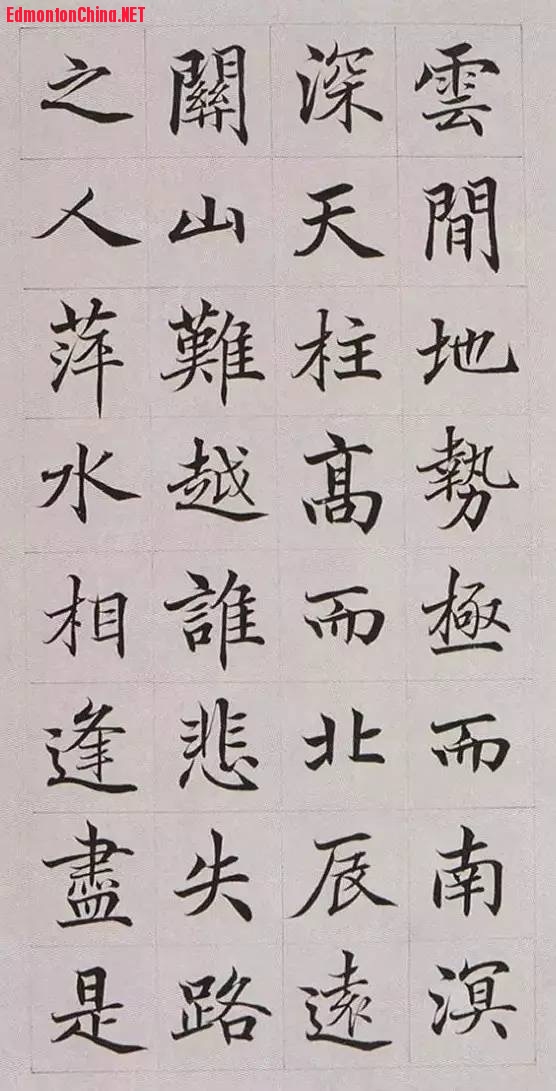 EdmontonChina.NET
雲間地勢極而南溟
深天柱高而北辰遠
關山難越誰悲失路
之人萍水相逢盡是